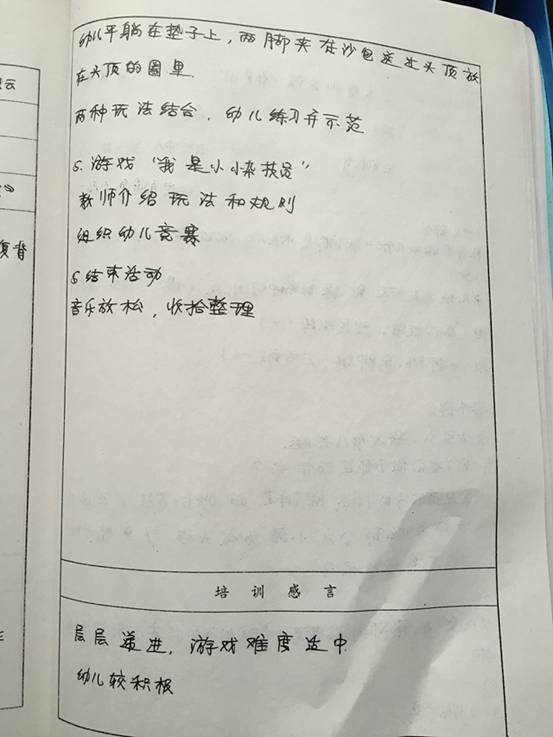 幼儿平躺在垫子上,两脚夹住沙包送过头顶放
在头顶的圈里
两种玩法结合,幼儿练习并示范
5.游戏“我是小小杂技员”
教师介绍玩法和规则
组织幼儿竞赛
6结束活动
音乐放松,收拾整理
培训感言
层层递进,游戏难度适中
幼儿较积极